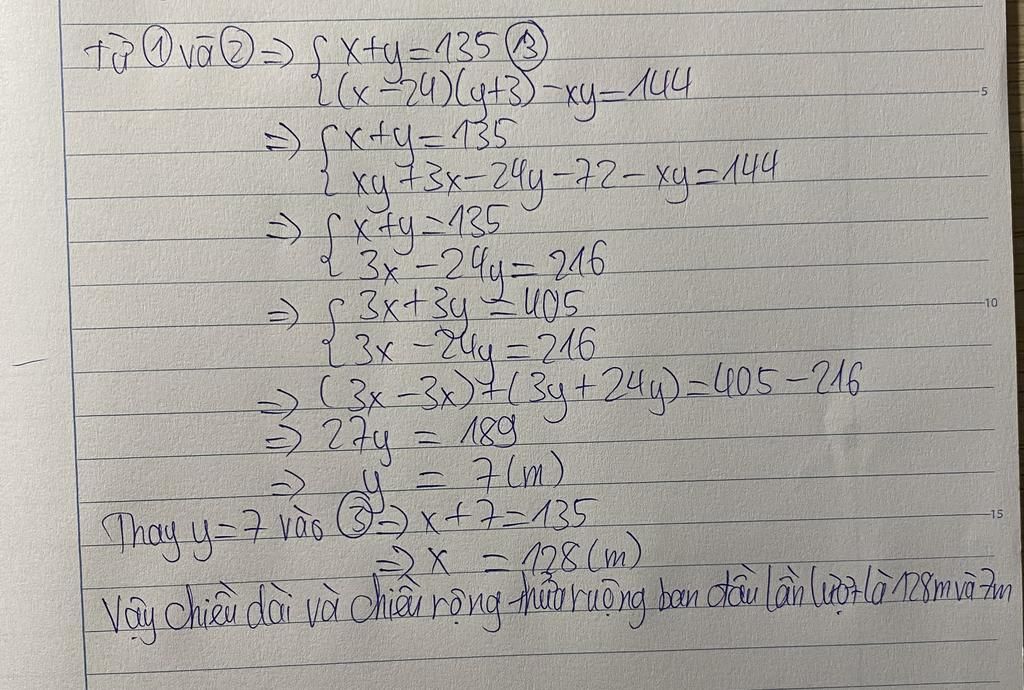 từ ① và ② => { x+y=135 ③
{ (x-24)(y+3)-xy=144
5
=> { x+y=135
{ xy+3x-24y-72-xy=144
=> { x+y=135
{ 3x-24y=216
=> { 3x+3y=405
10
{ 3x-24y=216
=> (3x-3x)+(3y+24y)=405-216
=> 27y = 189
=> y = 7(m)
Thay y=7 vào ③ => x+7=135
15
=> x = 128(m)
Vậy chiều dài và chiều rộng thửa ruộng ban đầu lần lượt là 128m và 7m